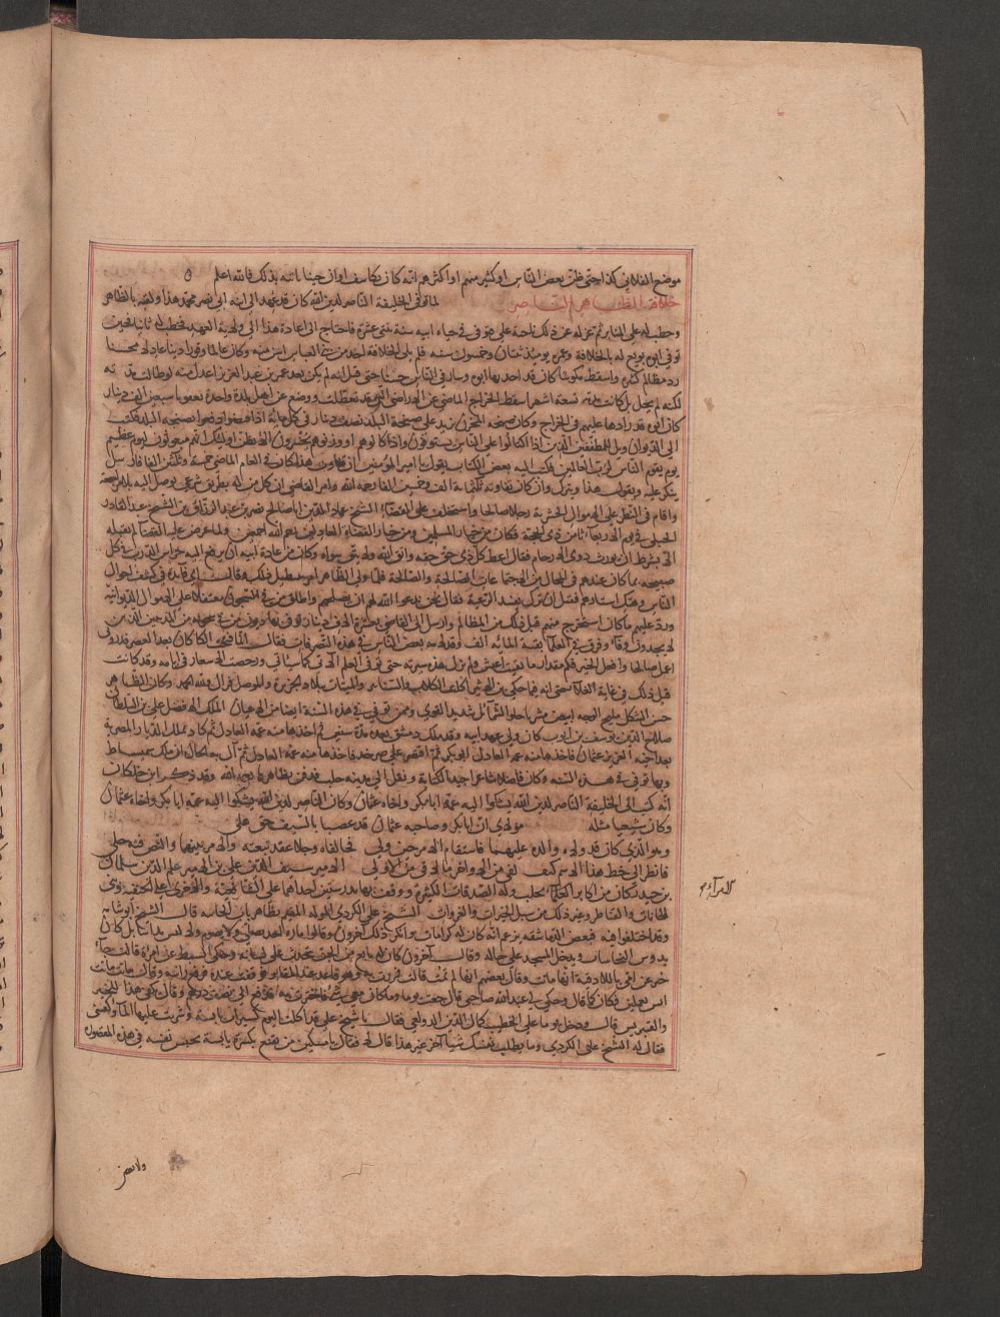 موضع الفلاني كذا حتى ظن بعض الناس او كثير منهم او اكثرهم انه كان يكاشف او ان جنيا يأتيه بذلك فالله اعلم
خلافة الظاهر بن الناصر لما توفي الخليفة الناصر لدين الله كان قد عهد الى ابنه ابي نصر محمد هذا ولقبه بالظاهر
وخطب له على المنابر ثم عزله عن ذلك باخيه علي فتوفي في حياة ابيه سنة ثنتي عشرة فاحتاج الى اعادة هذا الى ولاية العهد فخطب له ثانيا فحين
توفي ابوه بويع له بالخلافة وعمره يومئذ ثنتان وخمسون سنة فلم يلي الخلافة احد من بني العباس اسن منه وكان عاقلا وقورا دينا عادلا محسنا
رد مظالم كثيرة واسقط مكوسا كان قد احدثها ابوه وسار في الناس حسنا حتى قيل انه لم يكن بعد عمر بن عبد العزيز اعدل منه لو طالت مدته
لكنه لم يحل بل كانت مدته تسعة اشهر اسقط الخراج الماضي عن الاراضي التي قد تعطلت ووضع عن اهل بلدة واحدة بعقوبا سبعين الف دينار
كان ابوه قد زادها عليهم في الخراج وكان صنجة المخزن تزيد على صنجة البلد نصف دينار في كل مائة اذا قبضوا واذا دفعوا بصنجة البلد فكتب
الى الديوان ويل للمطففين الذين اذا اكتالوا على الناس يستوفون واذا كالوهم او وزنوهم يخسرون الا يظن اولئك انهم مبعوثون ليوم عظيم
يوم يقوم الناس لرب العالمين فكتب اليه بعض الكتاب يقول يا امير المؤمنين ان تفاوت هذا كان في العام الماضي خمسة وثلاثين الفا فارسل
ينكر عليه ويقول هذا يترك وان كان تفاوته ثلثمائة الف وخمسين الفا رحمه الله وامر القاضي ان كل من له بطريق شرعي يوصل اليه بلا مراجعة
واقام في النظر على الاموال الحشرية رجلا صالحا واستخلف على القضاء الشيخ عماد الدين ابا صالح نصر بن عبد الرزاق بن الشيخ عبد القادر
الحيلي في يوم الاربعاء ثامن ذي الحجة فكان من خيار المسلمين ومن خيار القضاة العادلين رحمهم الله اجمعين ولما عرض عليه القضاء لم يقبله
الا بشرط ان يورث ذوي الارحام فقال اعط كل ذي حق حقه واتق الله ولا تتق سواه وكان من عادة ابيه ان يرفع اليه حراس الدروب في كل
صبيحة بما كان عندهم في المحال من الاجتماعات الصالحة والطالحة فلما ولي الظاهر امر بتبطيل ذلك وقال اي فايدة في كشف احوال
الناس وهتك استارهم فقيل ان ترك ذلك يفسد الرعية فقال نحن ندعوا الله لهم ان يصلحهم واطلق من في السجون معتقلا على الاموال الديوانية
ورد عليهم ما كان استخرج منهم قبل ذلك من المظالم وارسل الى القاضي بعشرة الاف دينار يوفي بها ديون من في سجونه من المدينين الذين
لا يجدون وفاء وفرق في العلما بقية المائة الف وقد لامه بعض الناس في هذه التصرفات فقال انا فتحت الدكان بعد العصر فذروني
اعمل صالحا وافعل الخير فكم مقدار ما بقيت اعيش ولم تزل هذه سيرته حتى توفي في العام الاتي كما سياتي ورخصت الاسعار في ايامه وقد كانت
قبل ذلك في غاية الغلاء حتى انه فيما حكى ابن الاثير اكلت الكلاب والسنانير والميتات ببلاد الجزيرة والموصل فزال ولله الحمد وكان الظاهر
حسن الشكل مليح الوجه ابيض مشربا حلو الشمائل شديد القوى وممن توفي في هذه السنة ايضا من الاعيان الملك الافضل علي بن السلطان
صلاح الدين يوسف بن ايوب كان ولي عهد ابيه وقد ملك دمشق بعده مدة سنتين ثم اخذها منه عمه العادل ثم كاد يملك الديار المصرية
بعد اخيه العزيز عثمان فاخذها منه عمه العادل ابو بكر ثم اقتصر على صرخد فاخذها منه عمه العادل ثم آل به الحال ان ملك سميساط
وبها توفي في هذه السنة وكان فاضلا شاعرا جيد الكتابة ونقل الى مدينة حلب فدفن بظاهرها رحمه الله وقد ذكر ابن خلكان
انه كتب الى الخليفة الناصر لدين الله يشكوا اليه عمه ابا بكر واخاه عثمان وكان الناصر لدين الله يشكوا اليه عمه ابا بكر واخاه عثمان
وكان شيعيا مثله مولاي ان ابا بكر وصاحبه عثمان قد غصبا بالسيف حق علي
وهو الذي كان قد ولاه والده عليهما فاستقاما الامر حين ولي فخالفاه وحلا عقد بيعته والامر بينهما والنص فيه جلي
فانظر الى حظ هذا الاسم كيف لقي من الاواخر ما لاقى من الاول الامير سيف الدين علي بن الامير علم الدين سليمان
بن جندر كان من اكابر الامراء بحلب وله الصدقات الكثيرة ووقف بها مدرستين احداهما على الشافعية والاخرى على الحنفية وبنى
الخانات والقناطر وغير ذلك من سبل الخيرات والغزوات الشيخ علي الكردي الموله المقيم بظاهر باب الجابية قال الشيخ ابو شامة
وقد اختلفوا فيه فبعض الدماشقة يزعم انه كان له كرامات وانكر ذلك آخرون وقالوا ما رآه احد صلى ولا يصوم ولا لبس مداسا بل كان
يدوس النجاسات ويدخل المسجد على حاله وقال آخرون كان له تابع من الجن يتحدث على لسانه وحكى السبط عن امرأة قالت جاء
خبر عن امي باللاذقية انها ماتت وقال بعضهم انها لم تمت قالت فمررت به وهو قاعد عند المقابر فوقفت عنده فرفع راسه وقال ماتت ماتت
ايش تعملين فكان كما قال وحكى لي عبد الله صاحبي قال
فقال له الشيخ علي الكردي وما يطلب نفسك شيئا آخر غير هذا قال لا فقال يا مسكين من يقنع بكسرة يابسة يحبس نفسه في هذه المقصورة
الامراء
ولا يقضي